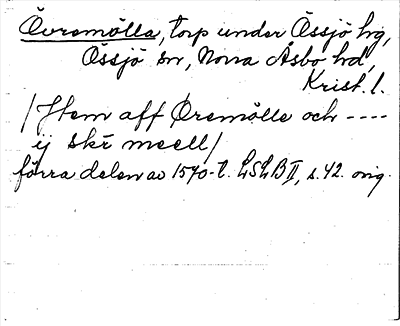 Övremölla, torp under Össjö hg,
Össjö sn, Norra Åsbo hd,
Krist. l.
/Jtem aff Øremølle och ----
ij skr meell/
förra delen av 1570-t. LSLB II, s. 42. orig.